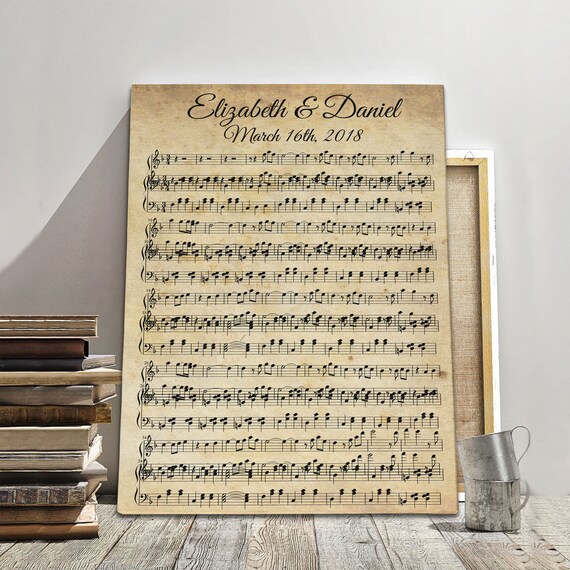 Elizabeth & Daniel
March 16th, 2018